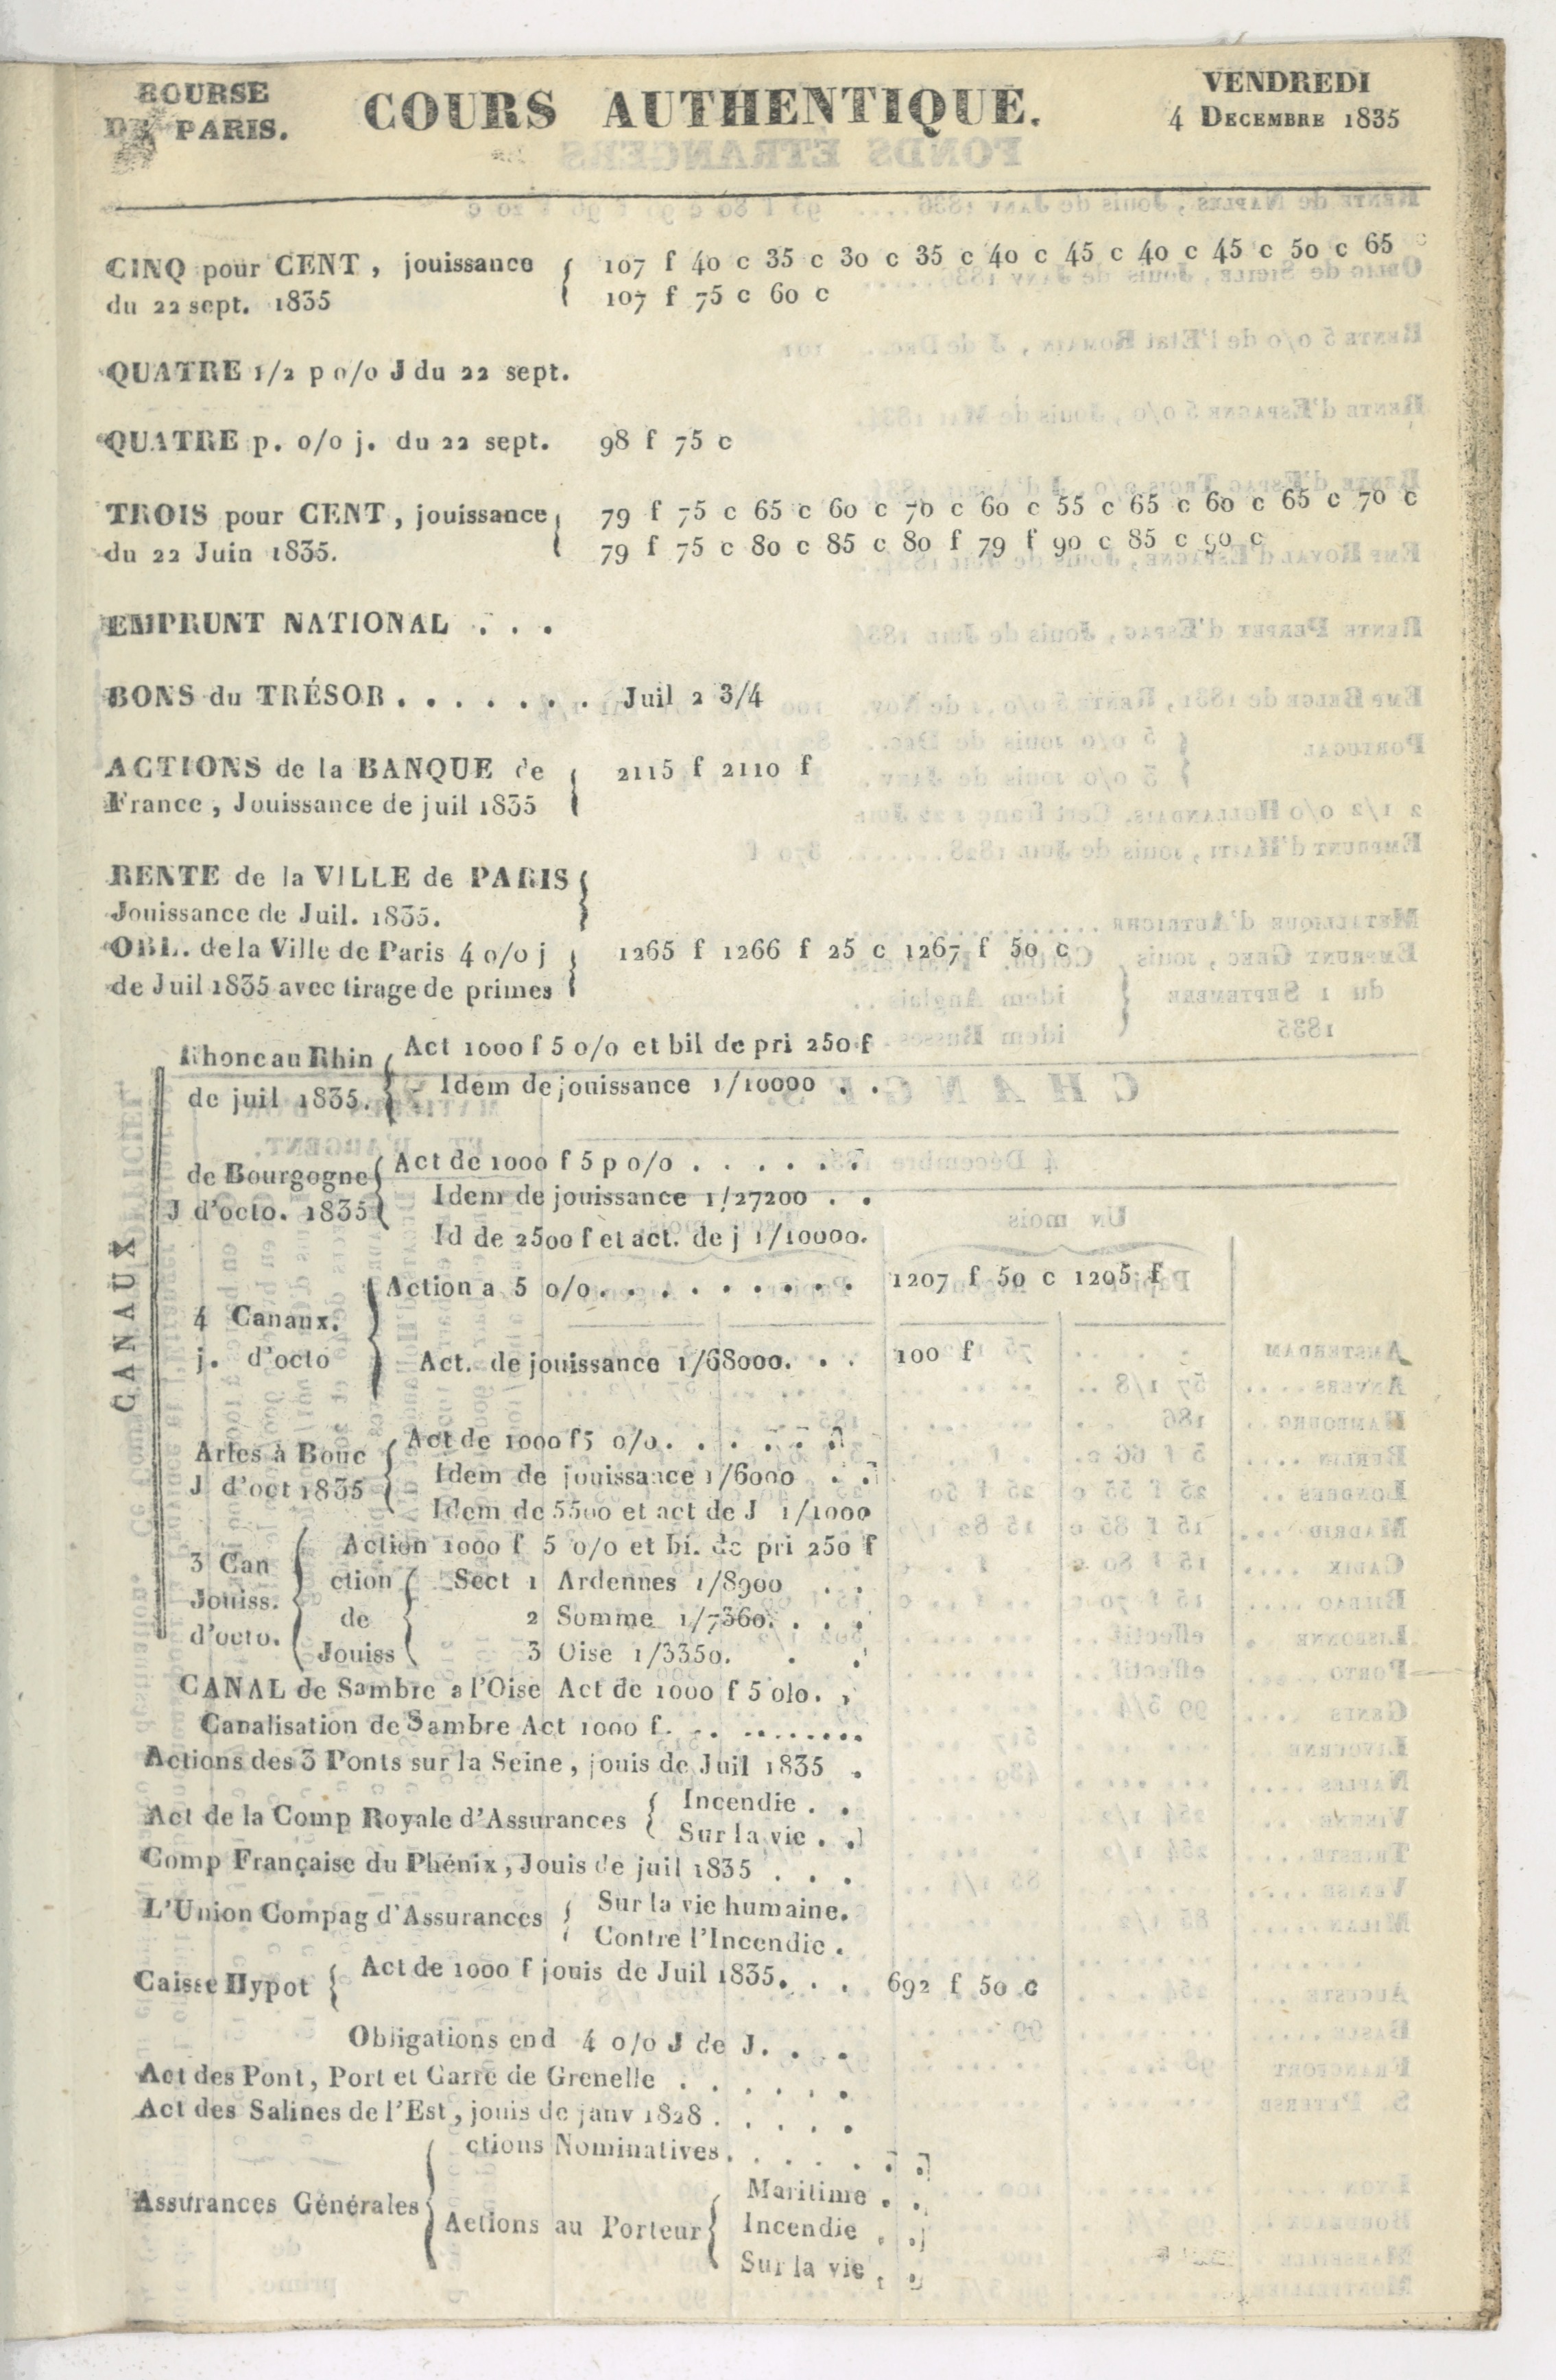 BOURSE
DE PARIS.
COURS AUTHENTIQUE.
VENDREDI
4 DECEMBRE 1835
CINQ pour CENT, jouissance
du 22 sept. 1835
107 f 40 c 35 c 30 c 35 c 40 c 45 c 40 c 45 c 50 c 65
107 f 75 c 60 c
QUATRE 1/2 p o/o J du 22 sept.
QUATRE p. o/o j. du 22 sept. 98 f 75 c
TROIS pour CENT, jouissance
du 22 Juin 1835.
79 f 75 c 65 c 60 c 70 c 60 c 55 c 65 c 60 c 65 c 70 c
79 f 75 c 80 c 85 c 80 f 79 f 90 c 85 c 90 c
EMPRUNT NATIONAL . . .
BONS du TRÉSOR . . . . . . . Juil 2 3/4
ACTIONS de la BANQUE de
France, Jouissance de juil 1835
2115 f 2110 f
RENTE de la VILLE de PARIS
Jouissance de Juil. 1835.
OBL. de la Ville de Paris 4 o/o j
de Juil 1835 avec tirage de primes
1265 f 1266 f 25 c 1267 f 50 c
CANAUX
Rhone au Rhin
de juil 1835.
Act 1000 f 5 o/o et bil de pri 250 f
Idem de jouissance 1/10000 . .
de Bourgogne
J d'octo. 1835
Act de 1000 f 5 p o/o . . . . . .
Idem de jouissance 1/27200 . .
Id de 2500 f et act. de j 1/10000.
4 Canaux.
j. d'octo
Action a 5 o/o . . . . . . . . . 1207 f 50 c 1205 f
Act. de jouissance 1/68000. . . 100 f
Arles à Bouc
J d'oct 1835
Act de 1000 f5 o/o. . . . . . .
Idem de jouissance 1/6000 . .
Idem de 5500 et act de J 1/1000
3 Can
Jouiss.
d'octo.
Action 1000 f 5 o/o et bi. de pri 250 f
ction
de
Jouiss
Sect 1 Ardennes 1/8900 . .
2 Somme 1/7360. . . .
3 Oise 1/3350. . .
CANAL de Sambre a l'Oise Act de 1000 f 5 olo. ,
Canalisation de Sambre Act 1000 f. . . ........
Actions des 3 Ponts sur la Seine, jouis de Juil 1835 .
Act de la Comp Royale d'Assurances
Incendie . .
Sur la vie . .
Comp Française du Phénix, Jouis de juil 1835 . . .
L'Union Compag d'Assurances
Sur la vie humaine.
Contre l'Incendie .
Caisse Hypot
Act de 1000 f jouis de Juil 1835. . . 692 f 50 c
Obligations end 4 o/o J de J. . . .
Act des Pont, Port et Garre de Grenelle . . . . . .
Act des Salines de l'Est, jouis de janv 1828 . . . . .
Assurances Générales
ctions Nominatives. . . . . . .
Actions au Porteur
Maritime . .
Incendie . .
Sur la vie . .